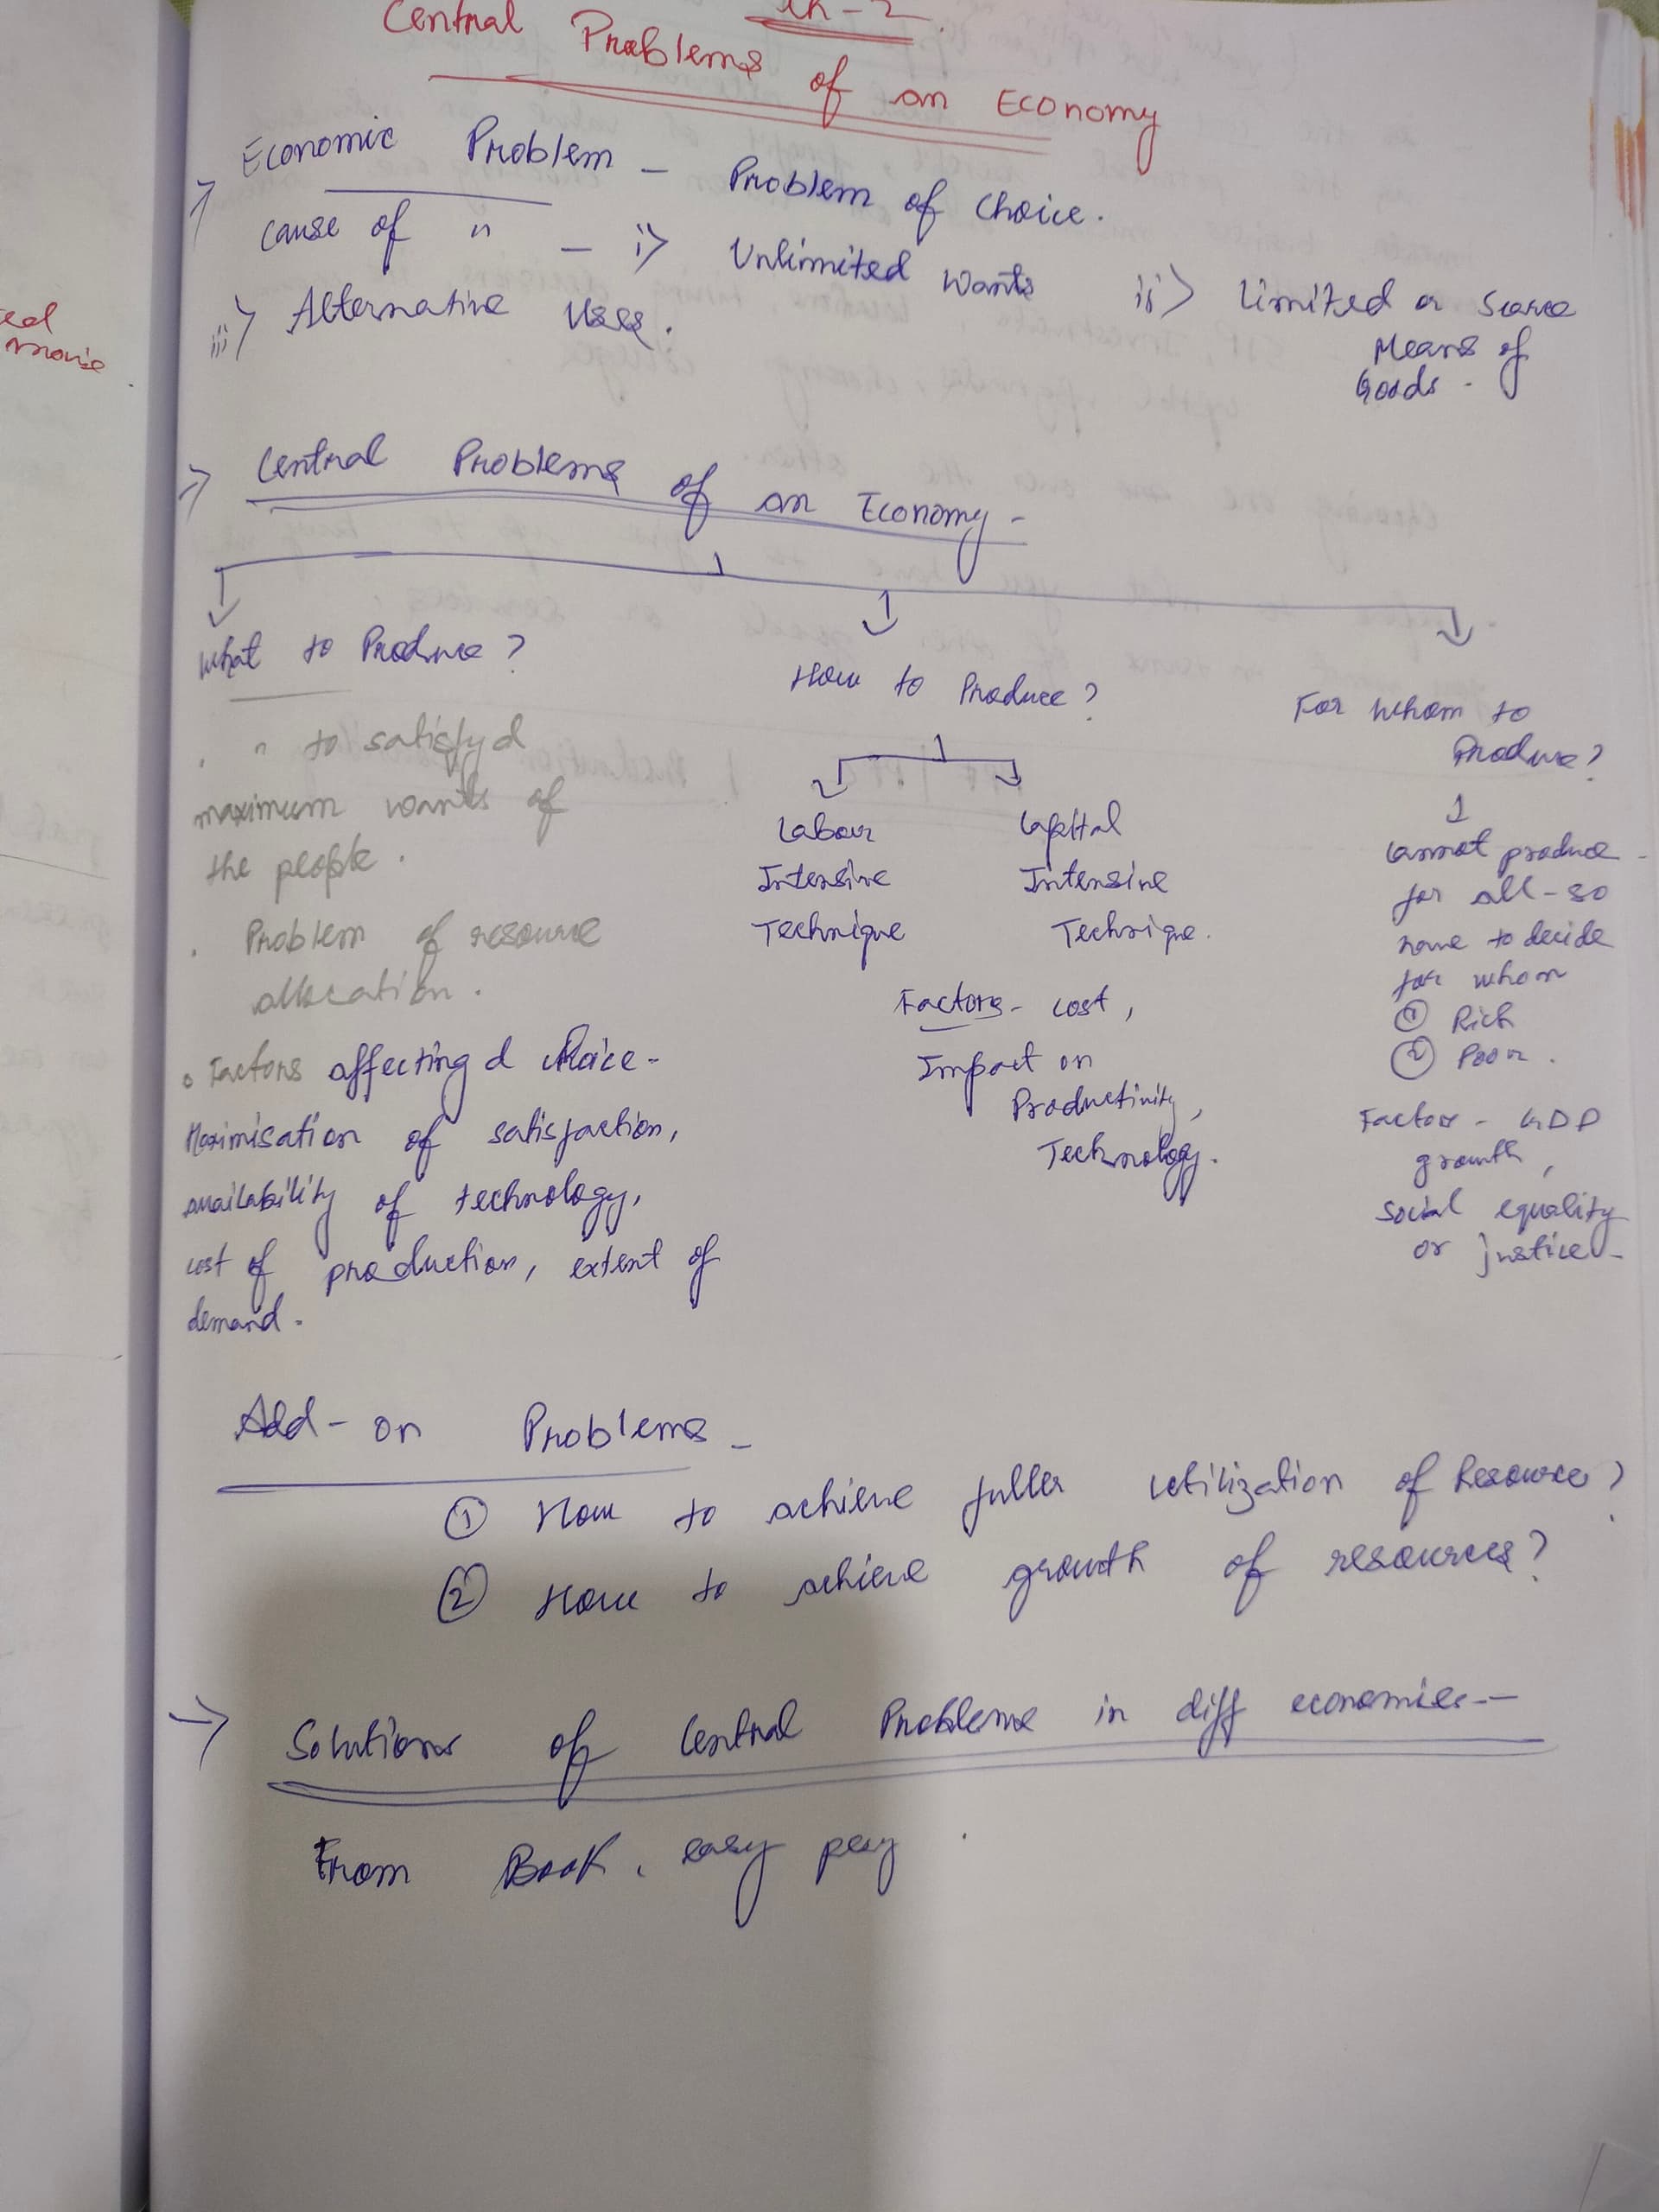 Ch-2
Central Problems of an Economy
Economic Problem - Problem of Choice.
Cause of " - i) Unlimited Wants ii) Limited or Scarce Means of Goods.
iii) Alternative Uses.
Central Problems of an Economy -
What to Produce?
" to satisfy d
maximum wants of
the people.
Problem of resource
allocation.
Factors affecting d choice-
Maximisation of satisfaction,
availability of technology,
cost of production, extent of
demand.
How to Produce?
Labour
Intensive
Technique
Capital
Intensive
Technique.
Factors - cost,
Impact on
Productivity,
Technology.
For Whom to
Produce?
Cannot produce
for all - so
have to decide
for whom
① Rich
② Poor.
Factors - GDP
growth,
social equality
or justice.
Add-on Problems -
① How to achieve fuller utilization of Resource?
② How to achieve growth of resources?
→ Solutions of Central Problems in diff economies--
From Book. easy